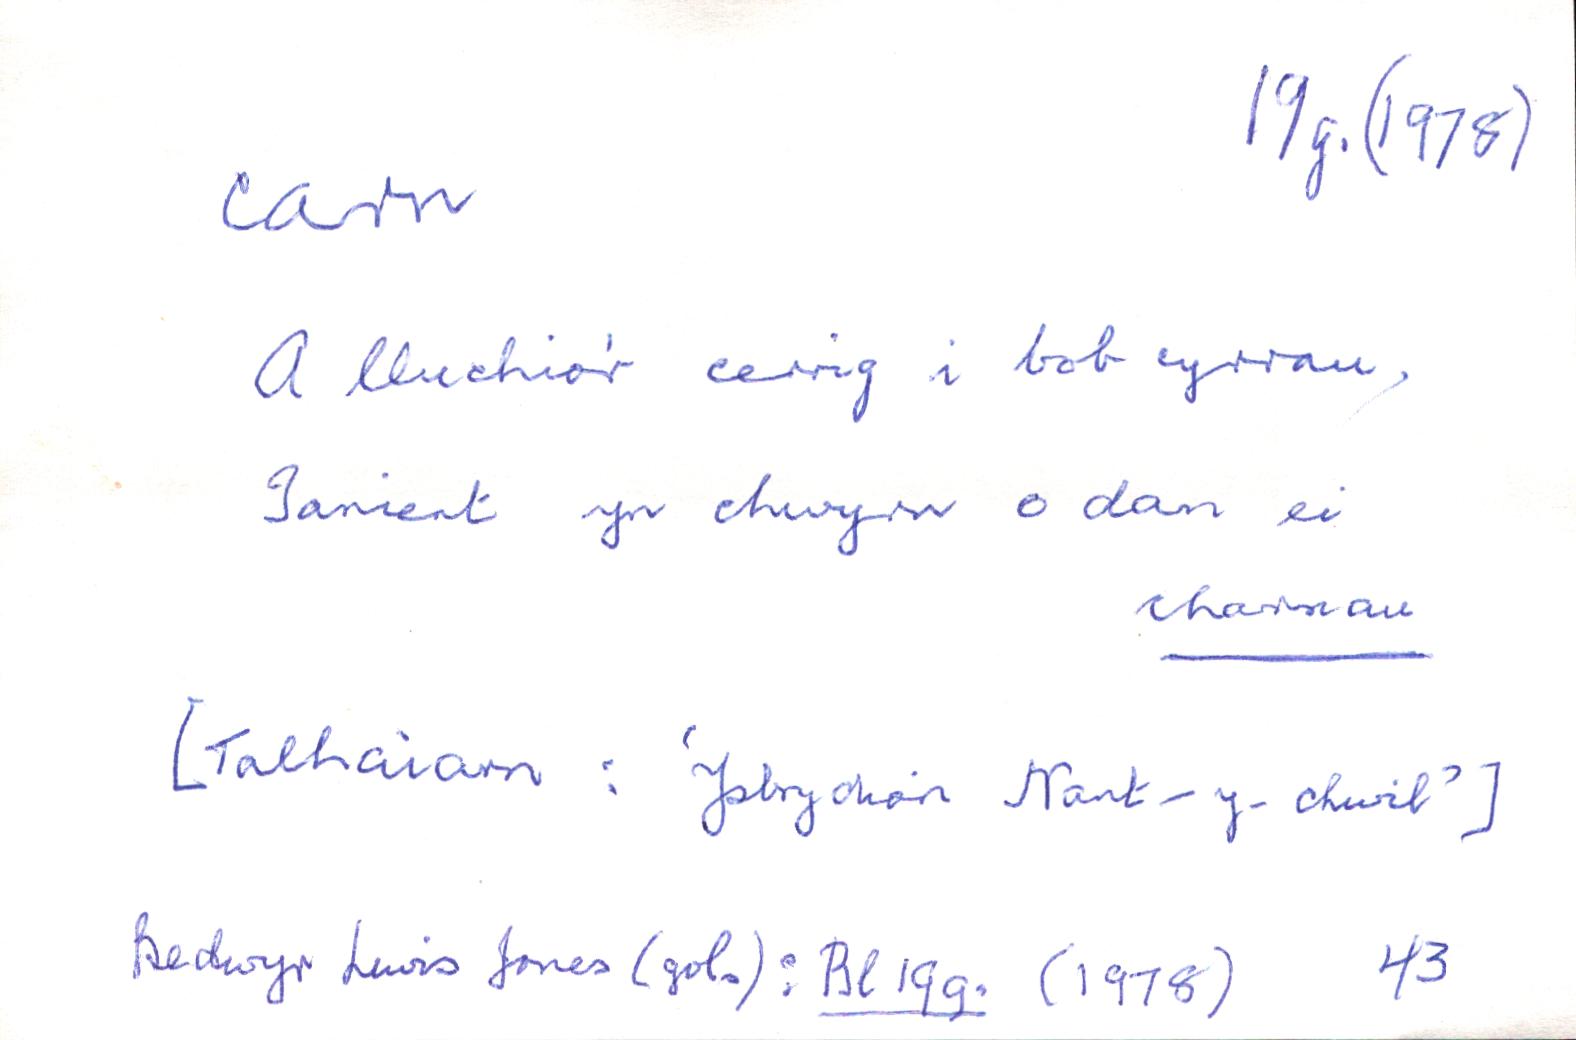 19g. (1978)
carn
A lluchio'r cerrig i bob cyrrau,
Tanient yn chwyrn o dan ei
charnau
[Talhaiarn : 'Ysbrydion Nant-y-chwil']
Bedwyr Lewis Jones (gol.) : Bl 19g. (1978) 43